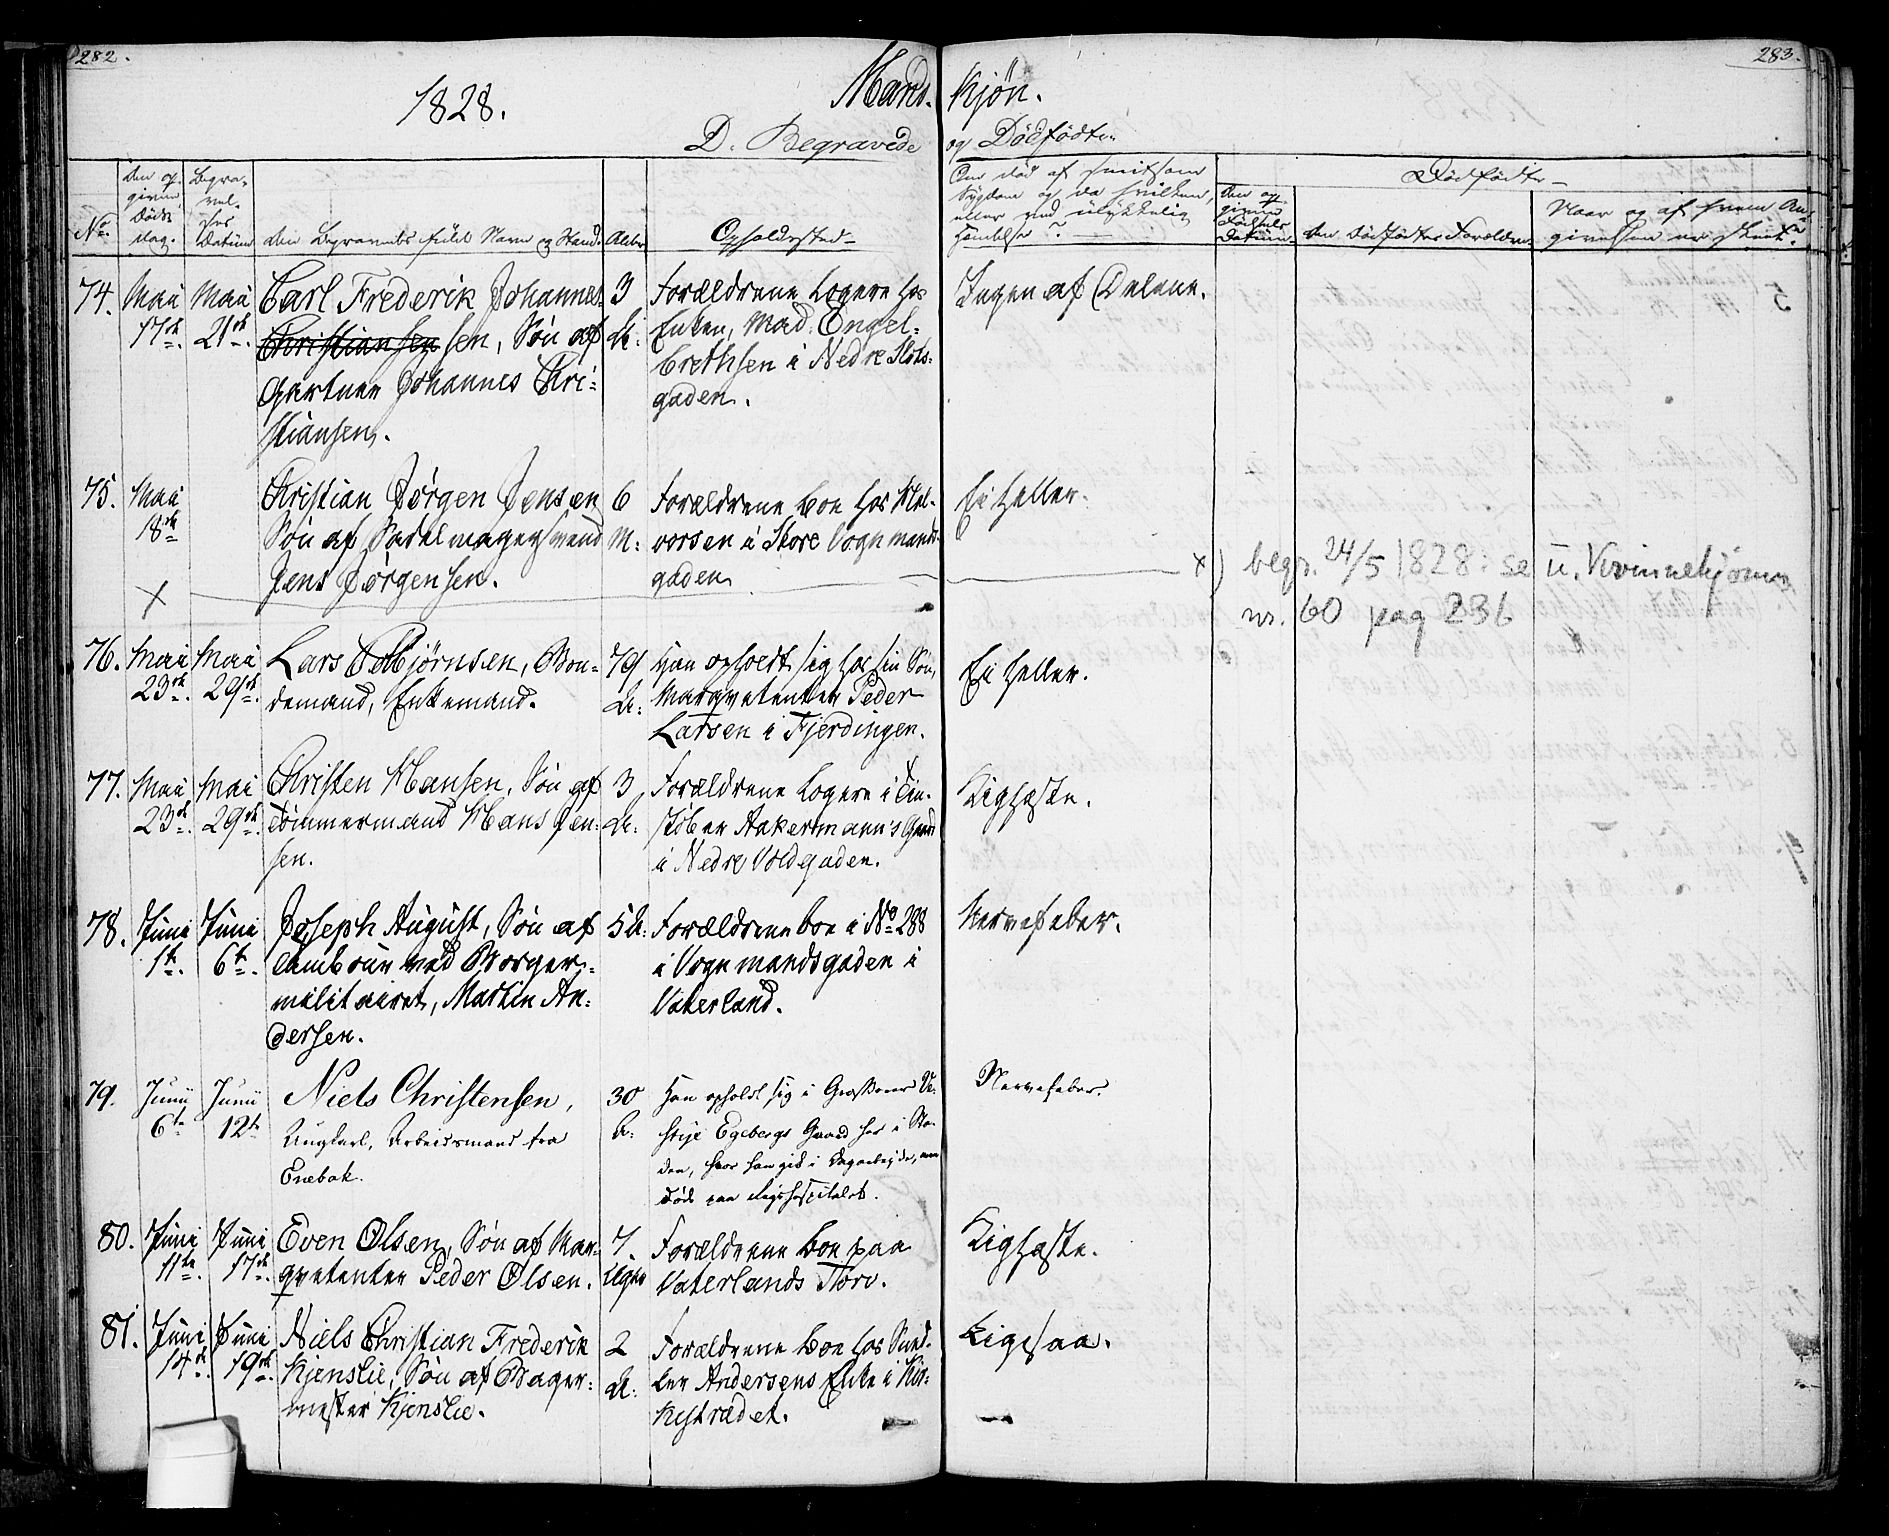 282.
283.
1828.
Mands-kjøn.
D. Begravede og Dødfødte
No.
Den op-
given
Døds
Dag.
Begra-
vel-
ses
Datum
Den Begravedes fulde Navn og Stand.
Alder
Opholdssted
Om død af smitsom
Sygdom og da hvilken,
eller ved ulykkelig
Hændelse?
Dødfødte
Den op-
givne
Fødsels
Datum
Den Dødfødtes Forældre
Naar og af hvem An-
givelsen er skeet.
74. Maii 17de. Maii 21de. Carl Frederik Johannes-
Christiansen sen, Søn af
Gartner Johannes Chri-
stiansen.
3 A:
Forældrene logere hos
Enken, Mad. Engel-
brethsen i Nedre Slots-
gaden.
Ingen af Delene.
75. Maii 18de
Christian Jørgen Jensen
Søn af Sadelmagersvend
Jens Jørgensen.
6 M:
Forældrene boe hos Hal-
vorsen i Store Vognmands-
gaden
Ei heller.
x
x) begr. 24/5 1828: se u. Kvinnekjønn
nr. 60 pag 236
76. Maii 23de. Maii 29de.
Lars Colbjørnsen, Bon-
demand, Enkemand.
79 A:
Han opholdt sig hos sin Søn,
Marqvetenter Peder
Larsen i Fjerdingen.
Ei heller.
77. Maii 23de. Mai 29de.
Christen Hansen, Søn af
Tømmermand Hans Jen-
sen.
3 A:
Forældrene logere i Tin-
støber Aakermann's Gaard
i Nedre Voldgaden.
Kighoste.
78. Juni 1te. Juni 6te.
Joseph August, Søn af
Tambour ved Borger-
militairet, Martin An-
dersen.
5 A:
Forældrene boe i No 288
i Vognmandsgaden i
Vaterland.
Nervefeber.
79. Junii 6te Junii 12te
Niels Christensen,
Ungkarl, Arbeidsmand fra
Enebak.
30 A:
Han opholdt sig i
Egebergs Gaard her i Sta-
den, hvor han gik i Dagarbejde, men
døde paa Rigshospitalet.
Nervefeber.
80. Juni 11te. Juni 17de.
Even Olsen, Søn af Mar-
qvetenter Peder Olsen.
7. Uger
Forældrene boe paa
Vaterlands Torv.
Kighoste.
81. Juni 14de. Juni 19de.
Niels Christian Frederik
Kjenslie, Søn af Bager-
mester Kjenslie.
2 A:
Forældrene boe hos
Andersens Enke i Kir-
kestrædet.
Ligesaa.